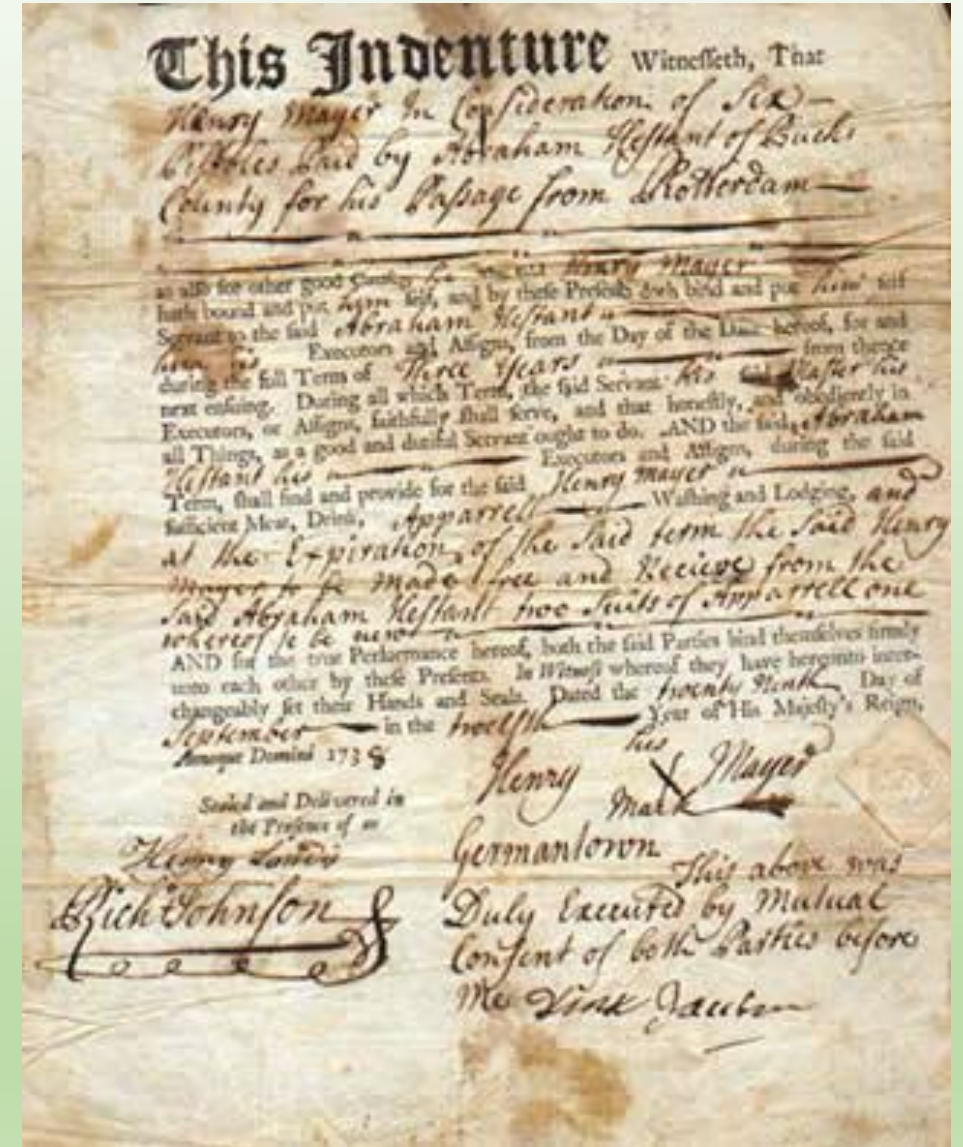 This Indenture Witnesseth, That
Henry Mayer In Consideration of Six
Pistoles Paid by Abraham Hestant of Bucks
County for his Passage from Rotterdam
as also for other good Causes he the said Henry Mayer
hath bound and put him self, and by these Presents doth bind and put him self
Servant to the said Abraham Hestant
Executors and Assigns, from the Day of the Date hereof, for and
during the full Term of Three Years from thence
next ensuing. During all which Term, the said Servant his said Master his
Executors, or Assigns, faithfully shall serve, and that honestly, and obediently in
all Things, as a good and dutiful Servant ought to do. AND the said Abraham
Hestant his Executors and Assigns, during the said
Term, shall find and provide for the said Henry Mayer
sufficient Meat, Drink, Apparrell Washing and Lodging, and
at the Expiration of the Said term the Said Henry
Mayer to be made free and Recieve from the
Said Abraham Hestant two Suits of Apparrell one
whereof to be new
AND for the true Performance hereof, both the said Parties bind themselves firmly
unto each other by these Presents. In Witness whereof they have hereunto inter-
changeably set their Hands and Seals. Dated the twenty Ninth Day of
September in the twelfth Year of His Majesty's Reign,
Annoque Domini 1738
his
Henry Mayer
Mark
Sealed and Delivered in
the Presence of us
Henry
Rich Johnson
Germantown
This above was
Duly Executed by Mutual
Consent of both Parties before
Me